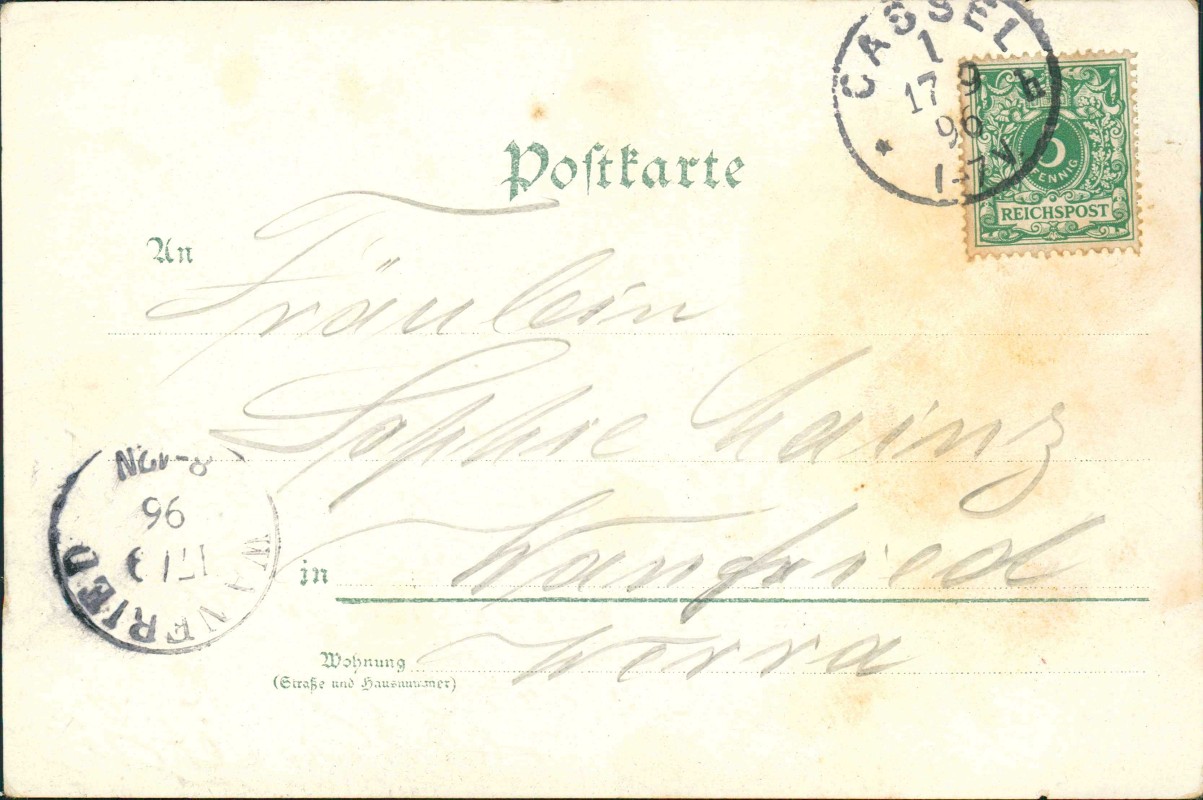 CASSEL
1
17 9
96
1-7V.
h
5
PFENNIG
REICHSPOST
Postkarte
An
Fräulein
Sophie Mainz
in Wanfried
Wohnung Werra
(Straße und Hausnummer)
WANFRIED
17 9
96
8-12N